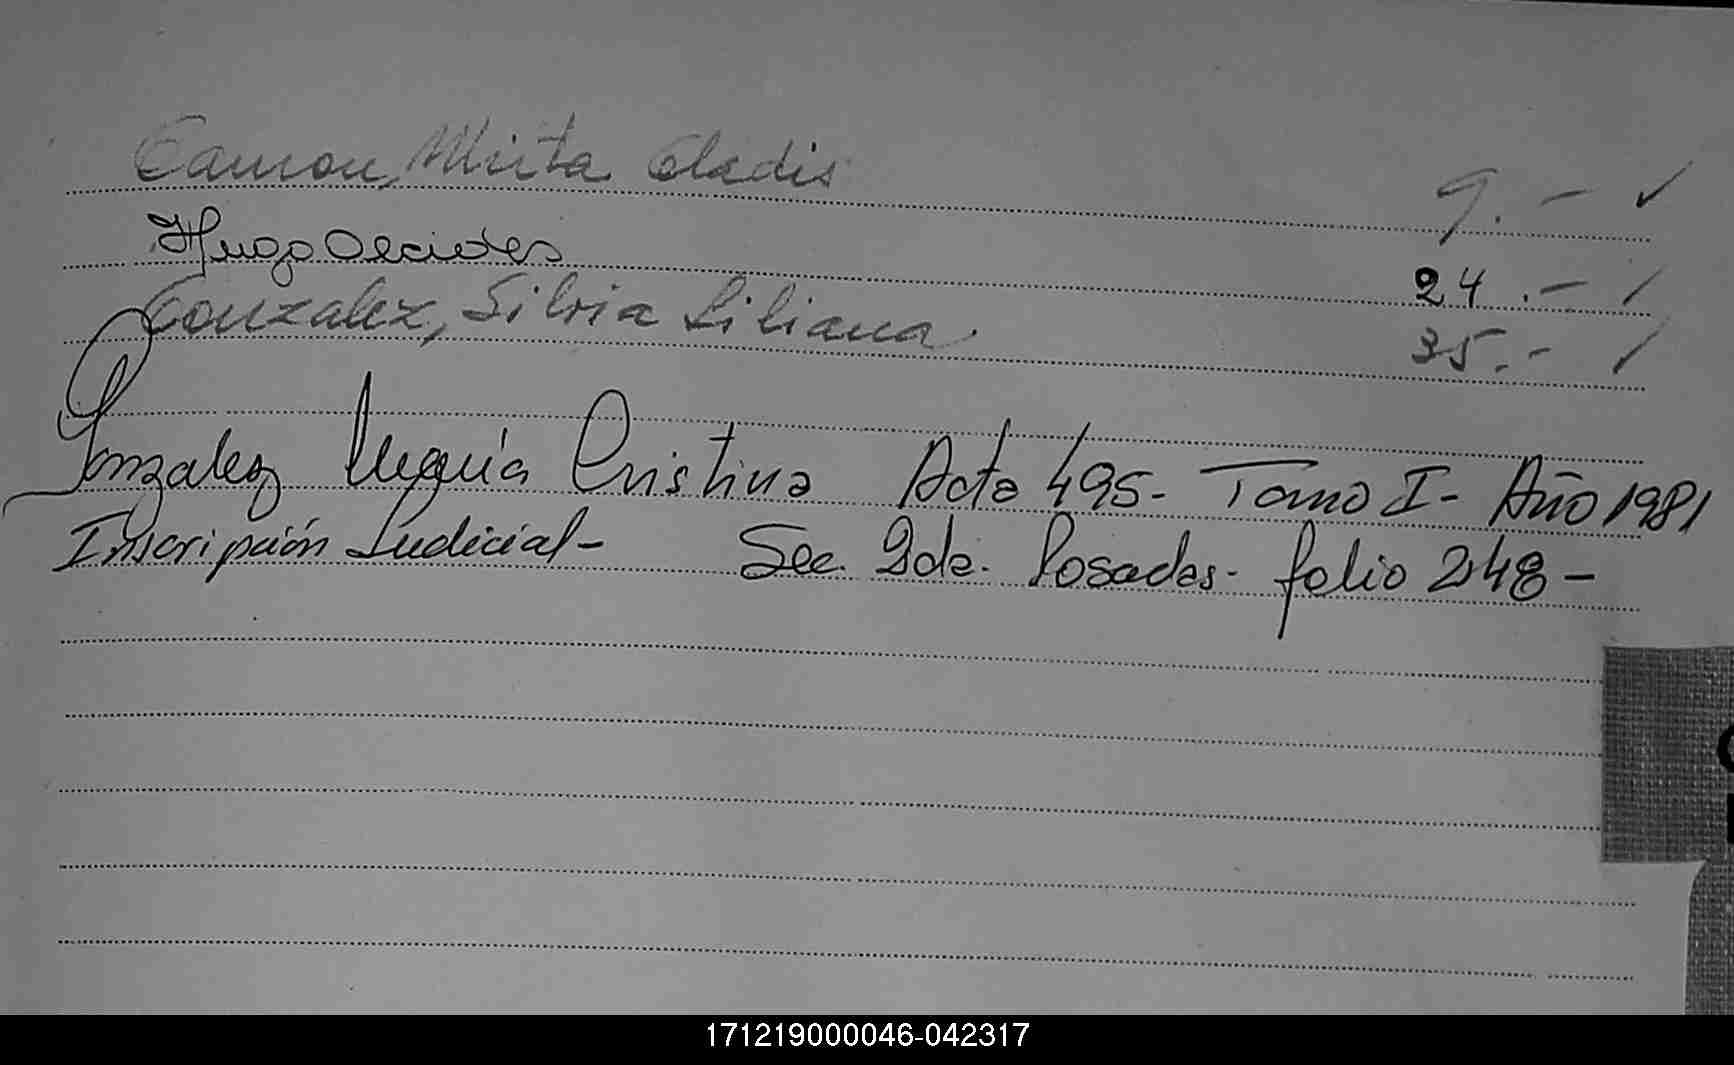 Gamon, Mirta Gladis 9.- ✓
Hugo Alcides 24.- /
Gonzalez, Silvia Liliana. 35.- /
Gonzalez María Cristina Acta 495- Tomo I- Año 1981
Inscripción Judicial- Sec. 2da. Posadas- folio 248-
171219000046-042317